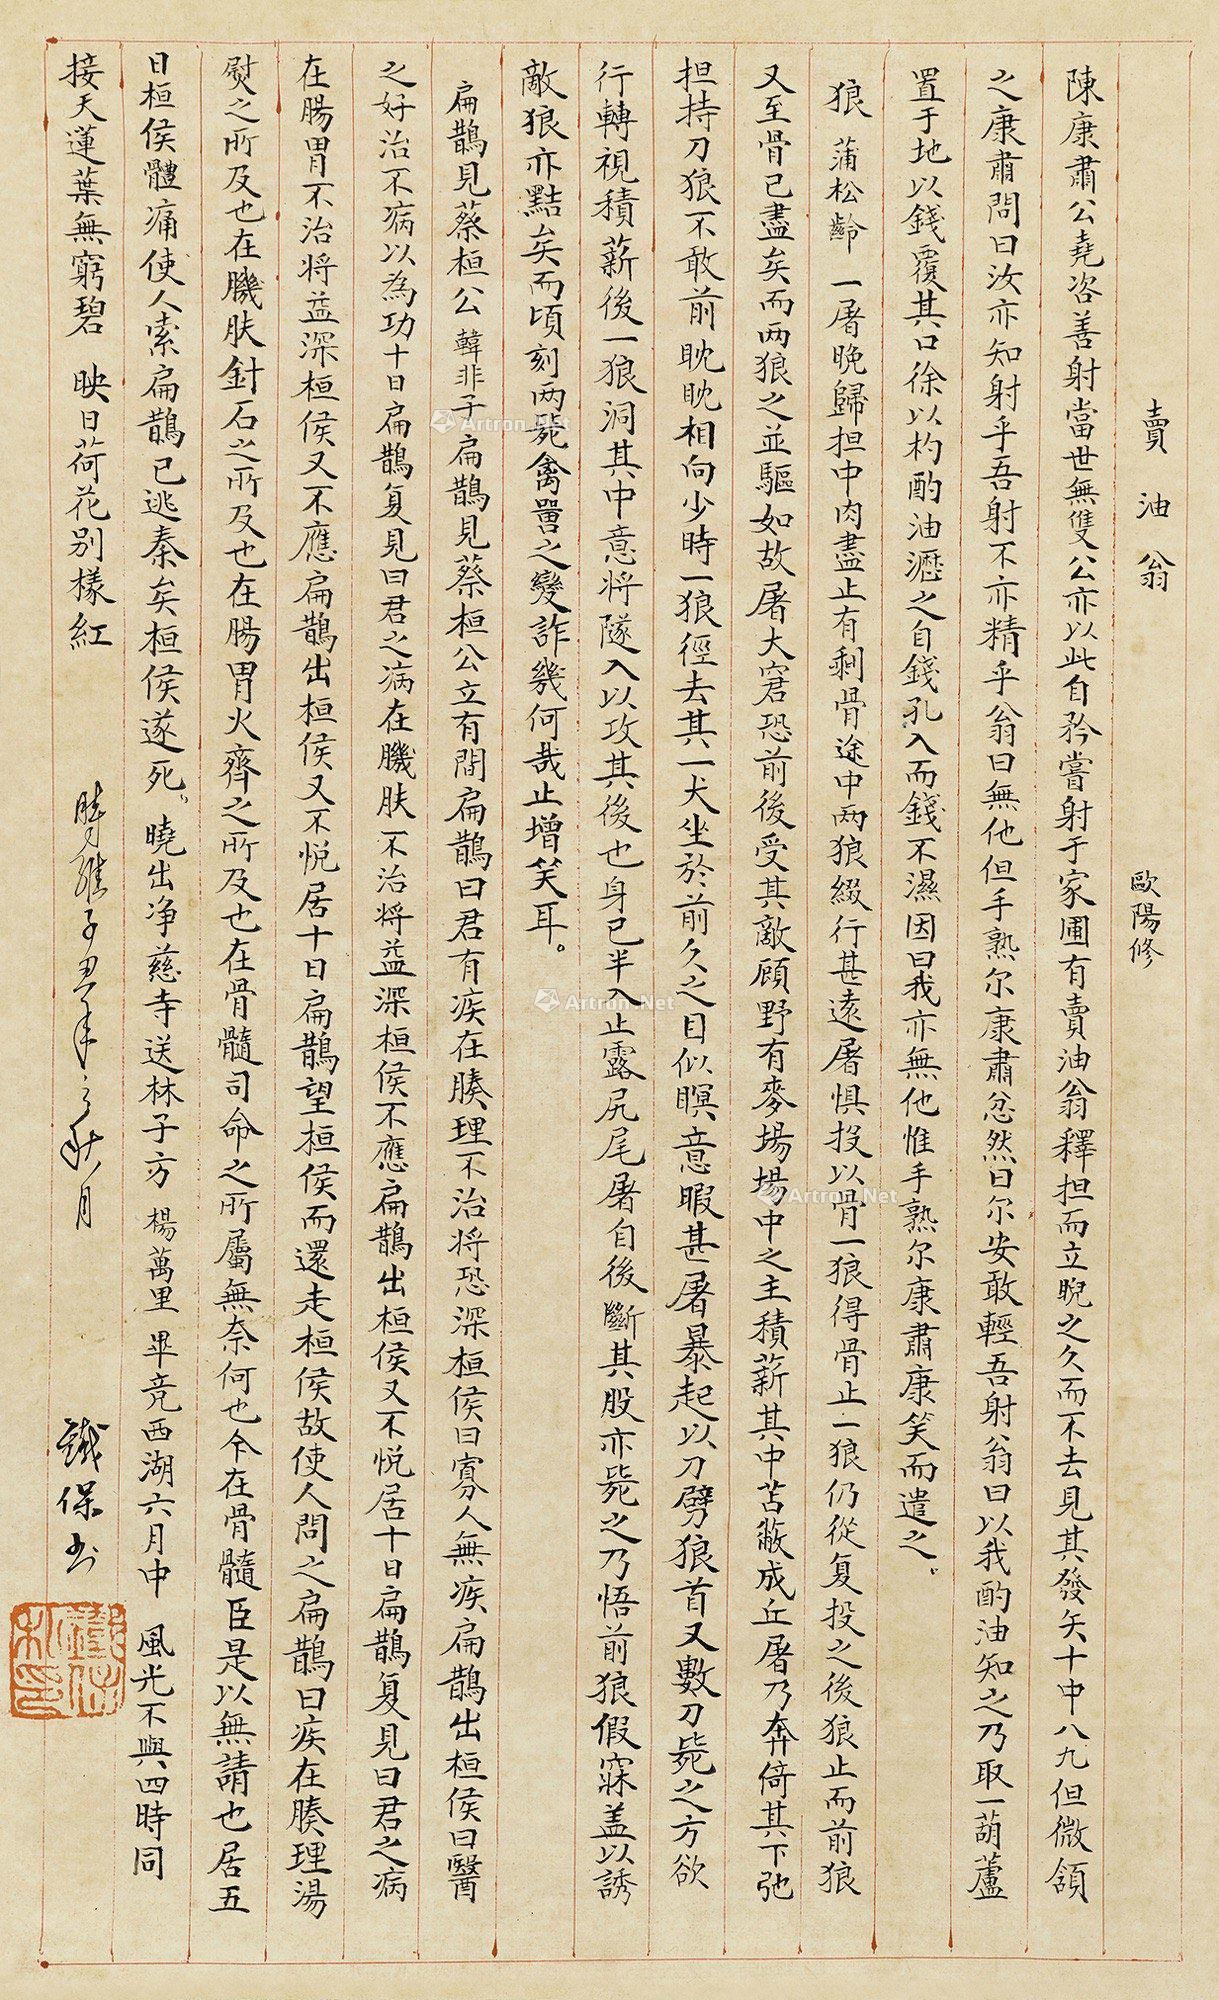 賣油翁 歐陽修
陳康肅公堯咨善射當世無雙公亦以此自矜嘗射于家圃有賣油翁釋担而立睨之久而不去見其發矢十中八九但微頷
之康肅問曰汝亦知射乎吾射不亦精乎翁曰無他但手熟尔康肅忿然曰尔安敢輕吾射翁曰以我酌油知之乃取一葫蘆
置于地以錢覆其口徐以杓酌油瀝之自錢孔入而錢不濕因曰我亦無他惟手熟尔康肅康笑而遣之。
狼 蒲松齡 一屠晚歸担中肉盡止有剩骨途中两狼綴行甚遠屠惧投以骨一狼得骨止一狼仍從复投之後狼止而前狼
又至骨已盡矣而两狼之並驅如故屠大窘恐前後受其敵顧野有麥場場中之主積薪其中苫蔽成丘屠乃奔倚其下弛
担持刀狼不敢前眈眈相向少時一狼徑去其一犬坐於前久之目似瞑意暇甚屠暴起以刀劈狼首又數刀毙之方欲
行轉視積薪後一狼洞其中意将隧入以攻其後也身已半入止露尻尾屠自後斷其股亦毙之乃悟前狼假寐盖以誘
敵狼亦黠矣而頃刻两毙禽嘼之變詐幾何哉止增笑耳。
扁鵲見蔡桓公 韓非子 扁鵲見蔡桓公立有間扁鵲曰君有疾在腠理不治将恐深桓侯曰寡人無疾扁鵲出桓侯曰醫
之好治不病以為功十日扁鵲复見曰君之病在膱肤不治将益深桓侯不應扁鵲出桓侯又不悦居十日扁鵲复見曰君之病
在腸胃不治将益深桓侯又不應扁鵲出桓侯又不悦居十日扁鵲望桓侯而還走桓侯故使人問之扁鵲曰疾在腠理湯
熨之所及也在膱肤針石之所及也在腸胃火齊之所及也在骨髓司命之所屬無奈何也今在骨髓臣是以無請也居五
日桓侯體痛使人索扁鵲已逃秦矣桓侯遂死。曉出净慈寺送林子方 楊萬里 畢竟西湖六月中 風光不與四時同
接天蓮葉無窮碧 映日荷花別樣紅
時維 年之秋月 鐵保书
Artron.Net
Artron.Net
Artron.Net